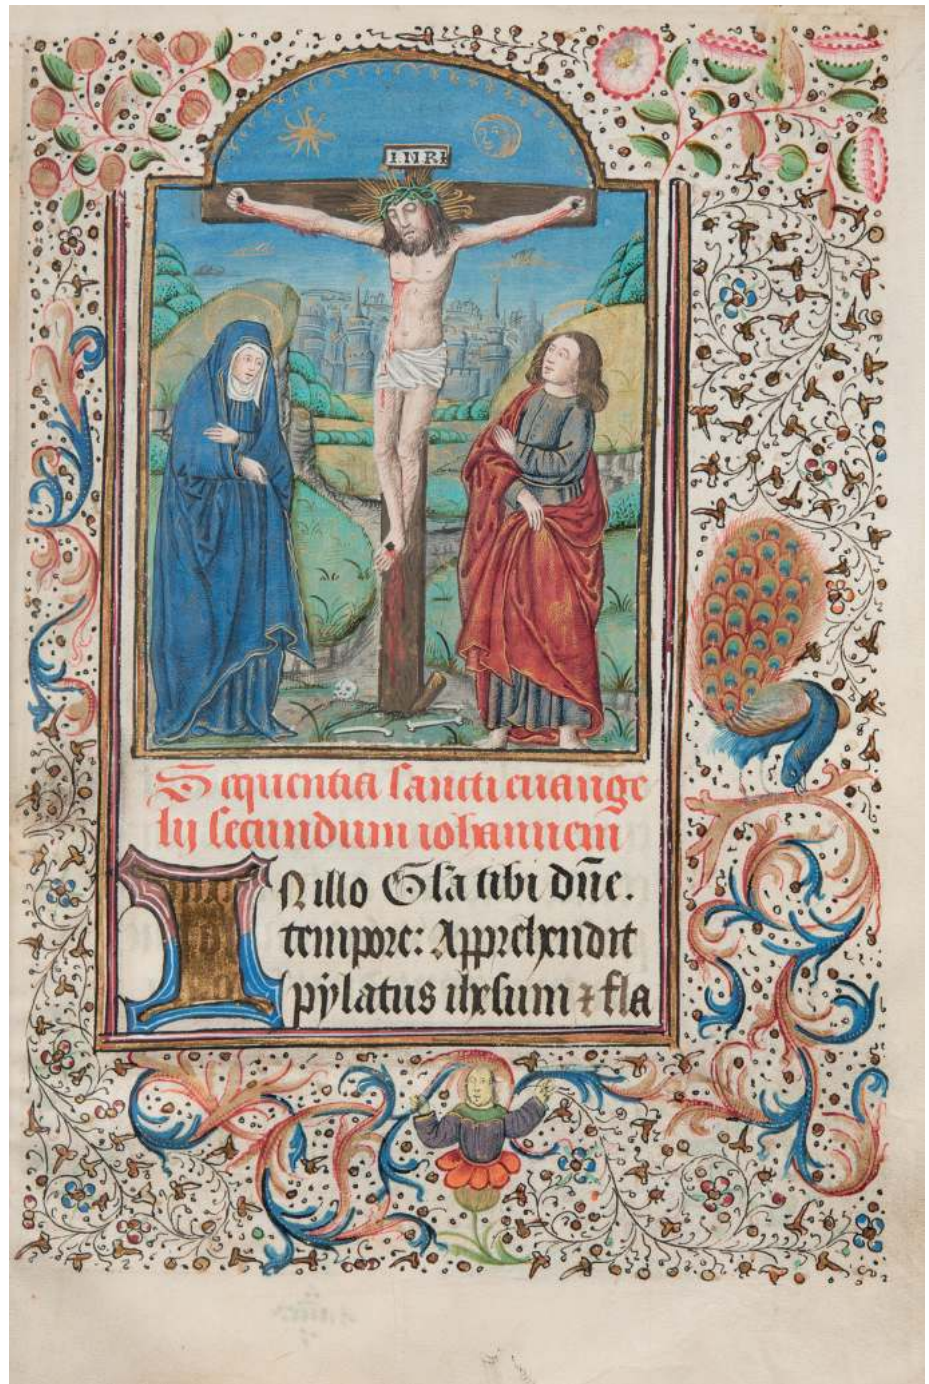 I.N.R.I
Sequentia sancti euange
lij secundum iohannem
IN illo Gl'a tibi dn̄e.
tempore: Apprehendit
pylatus ihesum ⁊ fla